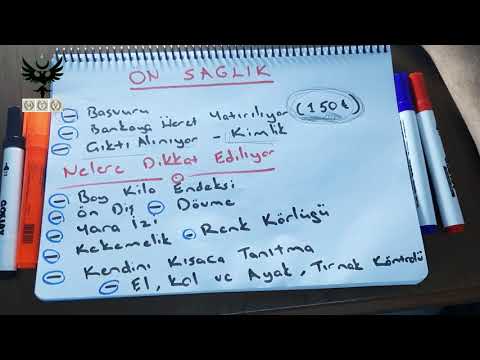 ÖN SAĞLIK
Başvuru
Bankaya Ücret Yatırılıyor (150₺)
Çıktı Alınıyor - Kimlik
Nelere Dikkat Ediliyor
Boy Kilo Endeksi
Ön Diş - Dövme
Yara İzi
Kekemelik - Renk Körlüğü
Kendini Kısaca Tanıtma
El, Kol ve Ayak, Tırnak Kontrolü